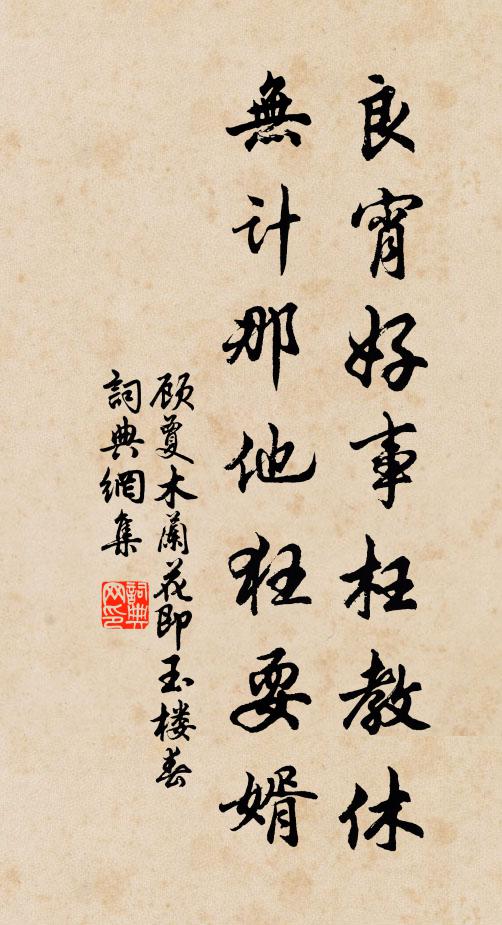 良宵好事枉教休
無计那他狂耍婿
顾夐木蘭花即玉楼春
詞典網集
詞典网印